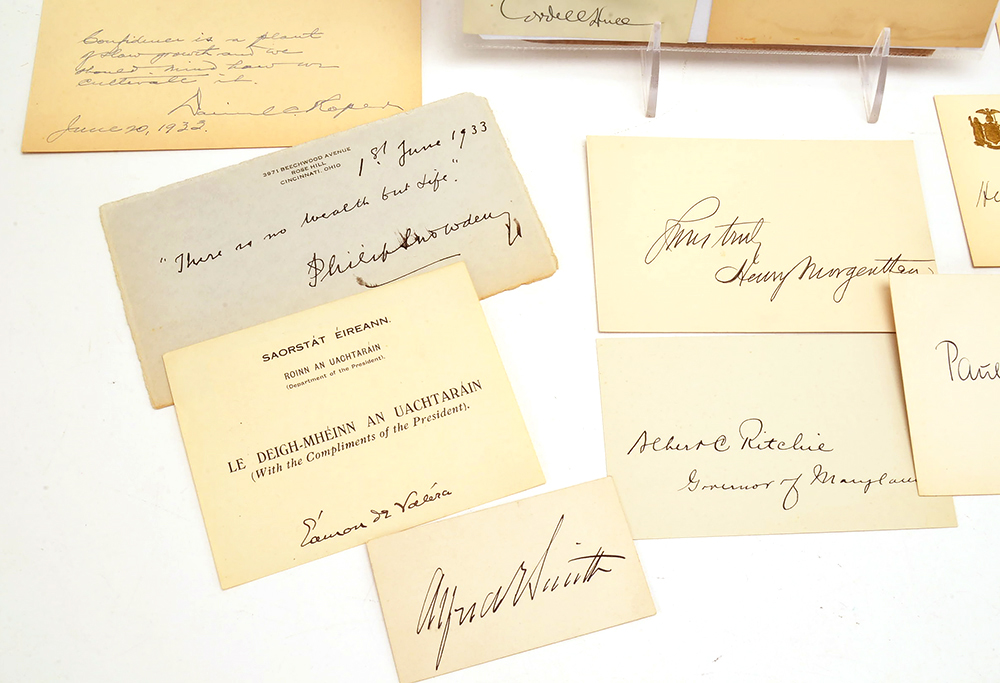 Cordell Hull
Confidence is a plant
of slow growth and we
should mind how we
cultivate it.
Daniel C. Roper
June 20, 1933.
3971 BEECHWOOD AVENUE
ROSE HILL
CINCINNATI, OHIO
1st June 1933
"There is no wealth but life."
Philip Snowden
SAORSTÁT ÉIREANN.
ROINN AN UACHTARÁIN
(Department of the President).
LE DEIGH-MHÉINN AN UACHTARÁIN
(With the Compliments of the President).
Éamon de Valéra
Alfred E Smith
Yours truly
Henry Morgenthau
Albert C Ritchie
Governor of Maryland
He
Paul